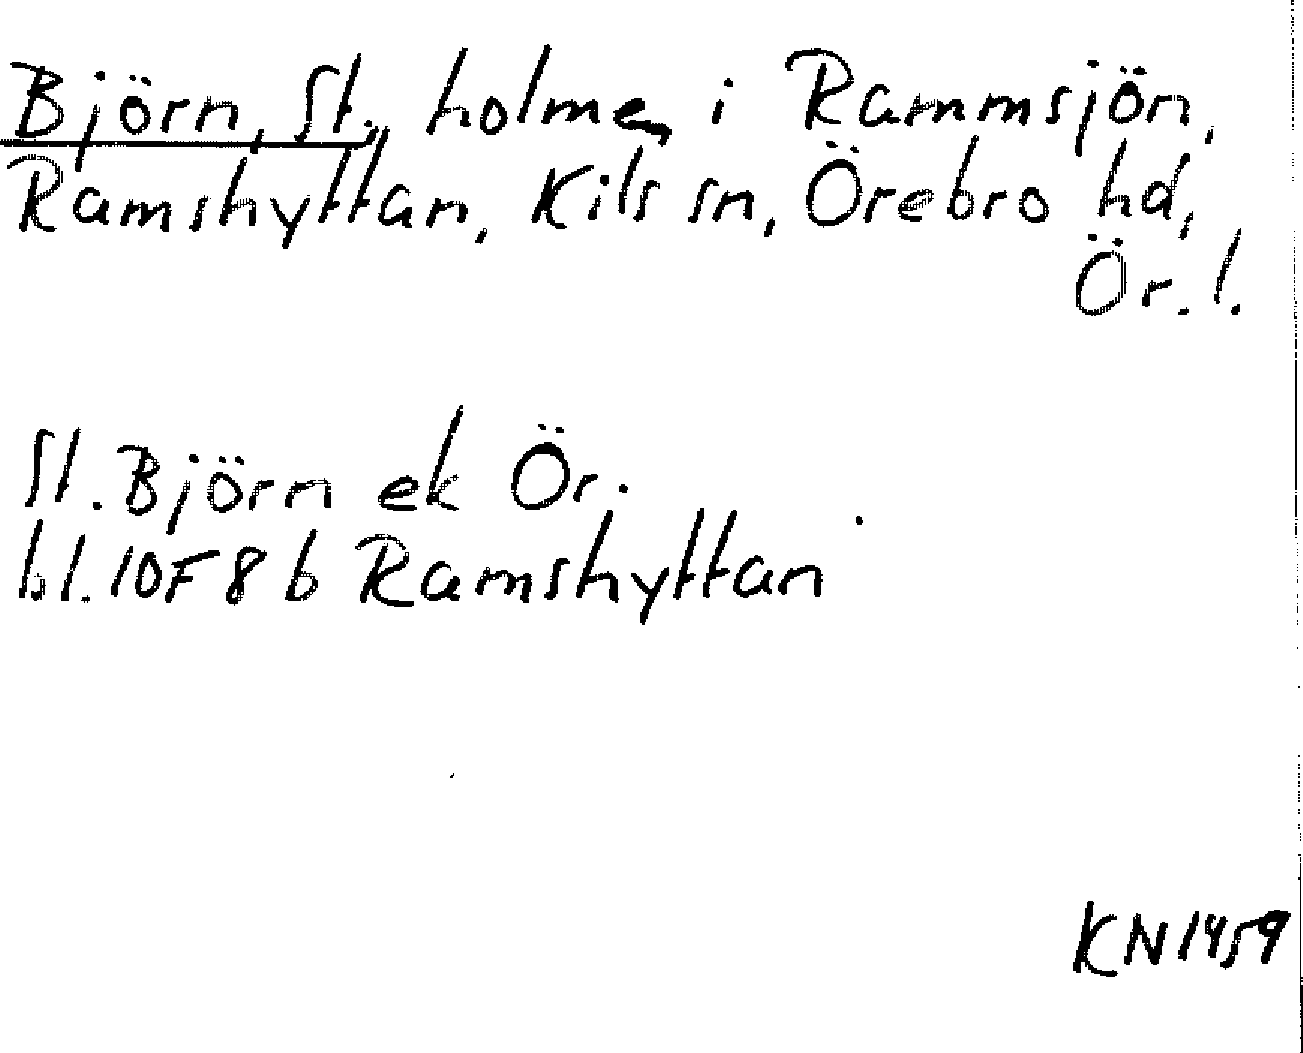 Björn, St., holme, i Rammsjön,
Ramshyttan, Kils sn, Örebro hd,
Ör. l.
St. Björn ek Ör.
bl. 10F8b Ramshyttan
KN1459